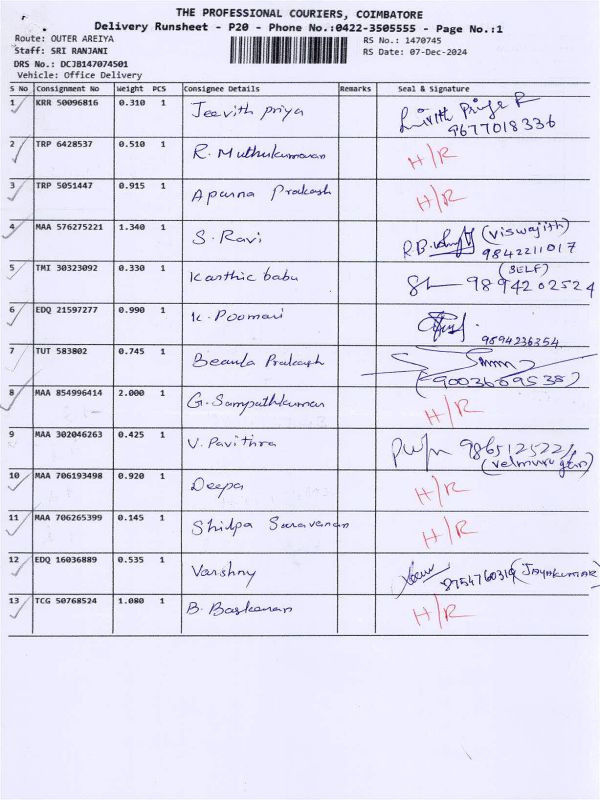 THE PROFESSIONAL COURIERS, COIMBATORE
Delivery Runsheet - P20 - Phone No.:0422-3505555 - Page No.:1
Route: OUTER AREIYA RS No.: 1470745
Staff: SRI RANJANI RS Date: 07-Dec-2024
DRS No.: DCJB147074501
Vehicle: Office Delivery
S No Consignment No Weight PCS Consignee Details Remarks Seal & Signature
1 KRR 50096816 0.310 1 Jeevith priya
9677018336
2 TRP 6428537 0.510 1 R. Muthukumaran H/R
3 TRP 5051447 0.915 1 Aparna Prakash H/R
4 MAA 576275221 1.340 1 S. Ravi (Viswajith)
9842211017
5 TMI 30323092 0.330 1 Karthic babu (SELF)
9894202524
6 EDQ 21597277 0.990 1 K. Poomari
9894236354
7 TUT 583802 0.745 1 Beaula Prakash
8 MAA 854996414 2.000 1 G. Sampathkumar H/R
9 MAA 302046263 0.425 1 V. Pavithra
10 MAA 706193498 0.920 1 Deepa H/R
11 MAA 706265399 0.145 1 Shilpa Saravanan H/R
12 EDQ 16036889 0.535 1 Varshny
(JAYAKUMAR)
13 TCG 50768524 1.080 1 B. Baskaran H/R